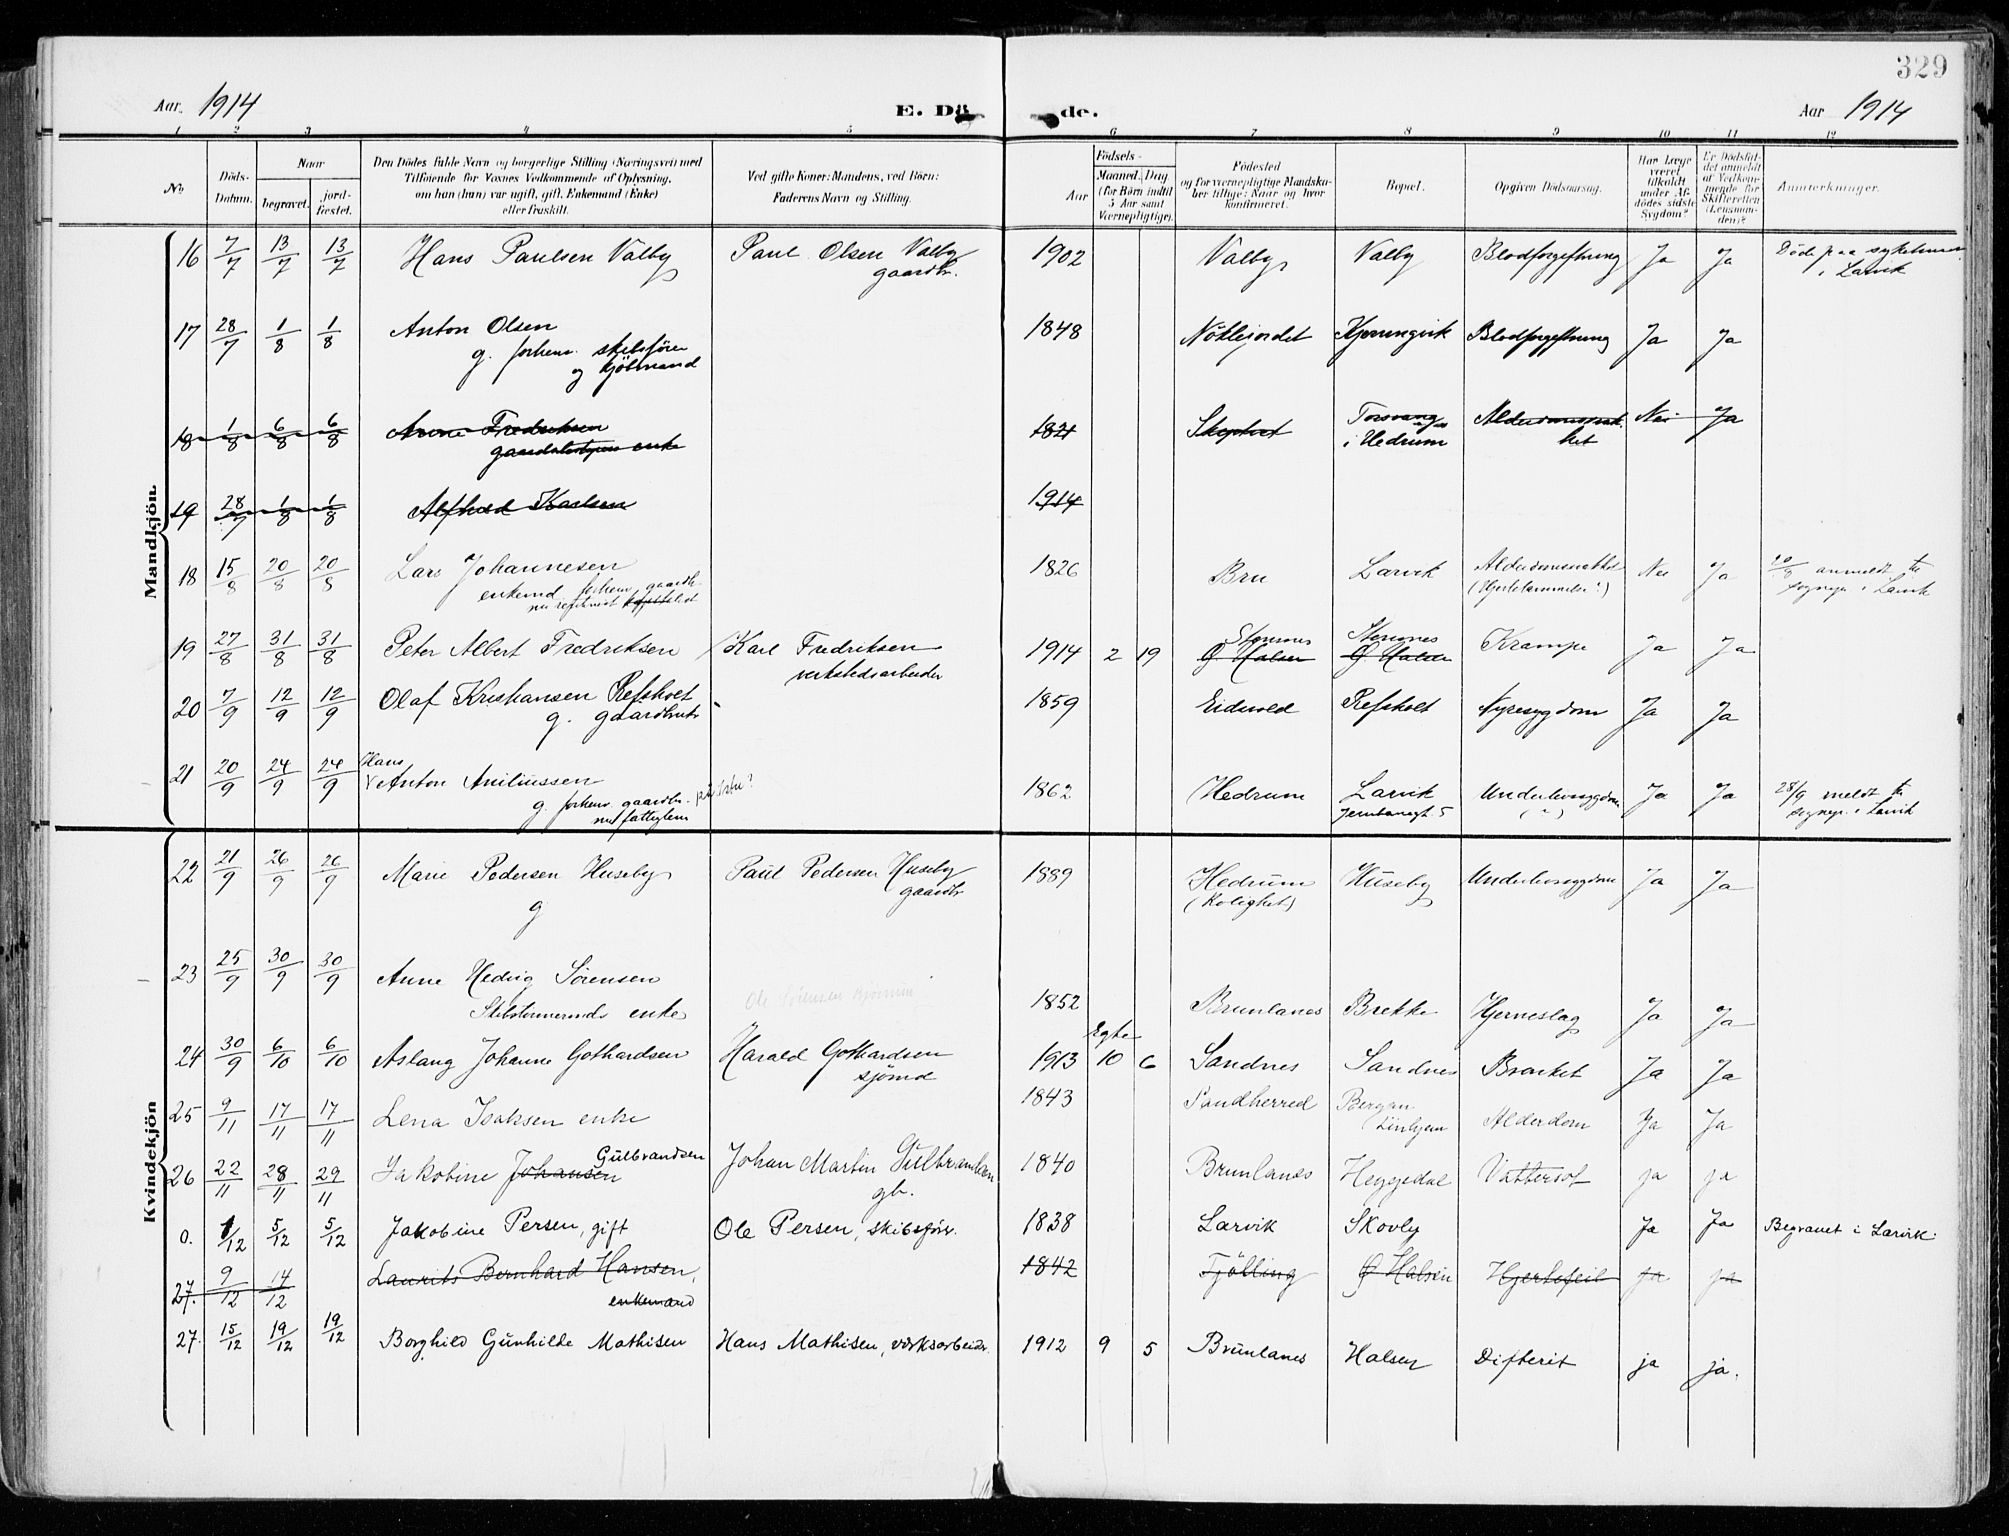 329
Aar. 1914
E. Dö de.
Aar 1914
1 2 3 4 5 6 7 8 9 10 11 12
No
Döds-Datum.
Naar
begravet.
jord-fæstet.
Den Dödes fulde Navn og borgerlige Stilling (Næringsvei) med
Tilföiende for Voxnes Vedkommende af Oplysning,
om han (hun) var ugift, gift, Enkemand (Enke)
eller fraskilt.
Ved gifte Koner: Mandens, ved Börn:
Faderens Navn og Stilling.
Födsels-
Aar
Maaned. Dag
(for Börn indtil
5 Aar samt
Værnepligtige).
Födested
og for værnepligtige Mandska-
ber tillige: Naar og hvor
konfirmeret.
Bopæl.
Opgiven Dödsaarsag.
Har Læge
været
tilkaldt
under Af-
dödes sidste
Sygdom?
Er Dödsfal-
det anmeldt
af Vedkom-
mende for
Skifteretten
(Lensman-
den)?
Anmærkninger.
Mandkjön.
16 7/7 13/7 13/7 Hans Paulsen Valby Paul Olsen Valby gaardbr. 1902 Valby Valby Blodforgiftning Ja Ja Döde paa sykehuset i Larvik
17 28/7 1/8 1/8 Anton Olsen 1848 Nötlejordet Kjerringvik Blodforgiftning Ja Ja
g. forhenv. skibsförer
og kjöbmand
18 1/8 6/8 6/8 Anne Fredriksen 1821 Skeplset Torsvang i Hedrum Alderdomssvakhet Nei Ja
enke
19 28/7 1/8 1/8 Alfhild Karlsen 1914
18 15/8 20/8 20/8 Lars Johannesen 1826 Bru Larvik Alderdomssvakhet (Hjertelammelse?) Nei Ja 20/8 anmeldt til sognepr. i Larvik
enkemd forhenv. gaardbr.
19 27/8 31/8 31/8 Peter Albert Fredriksen Karl Fredriksen verkstedsarbeider 1914 2 19 Stennes Ö. Halsen Stennes Ö Halsen Krampe Ja Ja
20 7/9 12/9 12/9 Olaf Kristiansen Refsholt 1859 Eidsvold Refsholt Nyresygdom Ja Ja
g. gaardbruk.
21 20/9 24/9 24/9 Hans Anton Amliussen 1862 Hedrum Larvik Jernbanegt. 5 Underlivssygdom (?) Ja Ja 28/9 meldt til sognepr. i Larvik
g. forhenv. gaardbr.
nu fattiglem
Kvindekjön
22 21/9 26/9 26/9 Marie Pedersen Huseby Paul Pedersen Huseby gaardbr. 1889 Hedrum (Kolighet) Huseby Underlivssygdom Ja Ja
g
23 25/9 30/9 30/9 Anne Hedvig Sörensen
Skibstömermds enke Ole Sörensen 1852 Brunlanes Brekke Hjerneslag Ja Ja
24 30/9 6/10 6/10 Aslaug Johanne Gothardsen Harald Gothardsen sjömd 1913 Egte 10 6 Sandnes Sandnes Brækket Ja Ja
25 9/11 17/11 17/11 Lena Isaksen enke 1843 Sandherred Bergan Alderdom Ja Ja
26 22/11 28/11 29/11 Jakobine Johansen Gulbrandsen Johan Martin Gulbrandsen gb. 1840 Brunlanes Heggedal Vattersot ja ja
0. 1/12 5/12 5/12 Jakobine Persen, gift Ole Persen, skibsförer. 1838 Larvik Skovly Ja Ja Begravet i Larvik.
27. 9/12 14/12 Laurits Bernhard Hansen, enkemand 1842 Tjölling Ö Halsen Hjertefeil ja ja
27. 15/12 19/12 19/12 Borghild Gunhilde Mathisen Hans Mathisen, verksarbeider. 1912 9 5 Brunlanes Halsen Difterit ja ja.